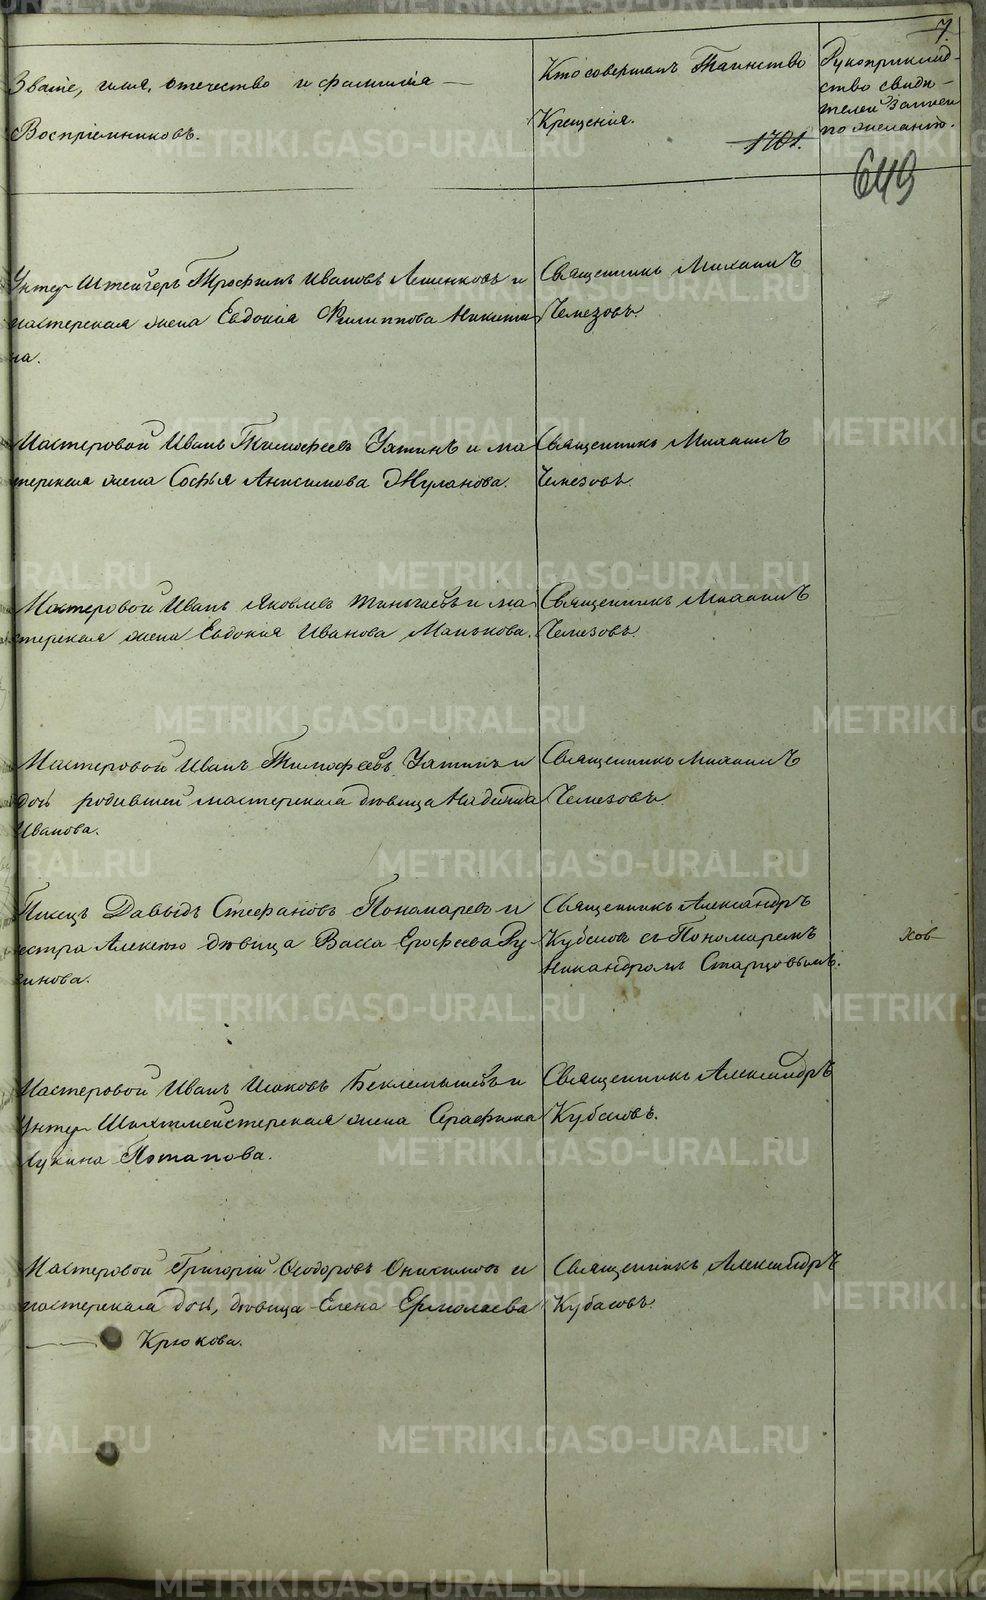 7.
Званіе, имя, отечество и фамилія
Воспріемниковъ.
Кто совершалъ Таинство
Крещенія.
1701.
Рукоприклад-
ство свидѣ-
телей записи
по желанію.
649
Унтер Штейгеръ Трофимъ Ивановъ и
мастерская жена Евдокія Филиппова Никити
на.
Священникъ Михаилъ
Чемезовъ.
Мастеровой Иванъ Тимофеевъ Уятинъ и ма
терская жена Софья Анисимова Жуланова.
Священникъ Михаилъ
Чемезовъ.
Мастеровой Иванъ Яковлевъ и ма
терская жена Евдокія Иванова Манькова.
Священникъ Михаилъ
Чемезовъ.
Мастеровой Иванъ Тимофеевъ Уятинъ и
дочь родившей мастерская дѣвица Надежда
Иванова.
Священникъ Михаилъ
Чемезовъ
Писецъ Давыдъ Стефановъ Пономаревъ и
сестра Алексѣю дѣвица Васса Ерофеева Ру
Священникъ Александръ
Кубасовъ съ Пономаремъ
Никандромъ Старцовымъ.
Мастеровой Иванъ Исаковъ Беклемышевъ и
Унтер Шихтмейстерская жена Серафима
Лукина Потапова.
Священникъ Александръ
Кубасовъ.
Мастеровой Григорій Ѳеодоровъ Онисимовъ и
мастерская дочь, дѣвица Елена Ермолаева
Крюкова.
Священникъ Александръ
Кубасовъ.
METRIKI.GASO-URAL.RU